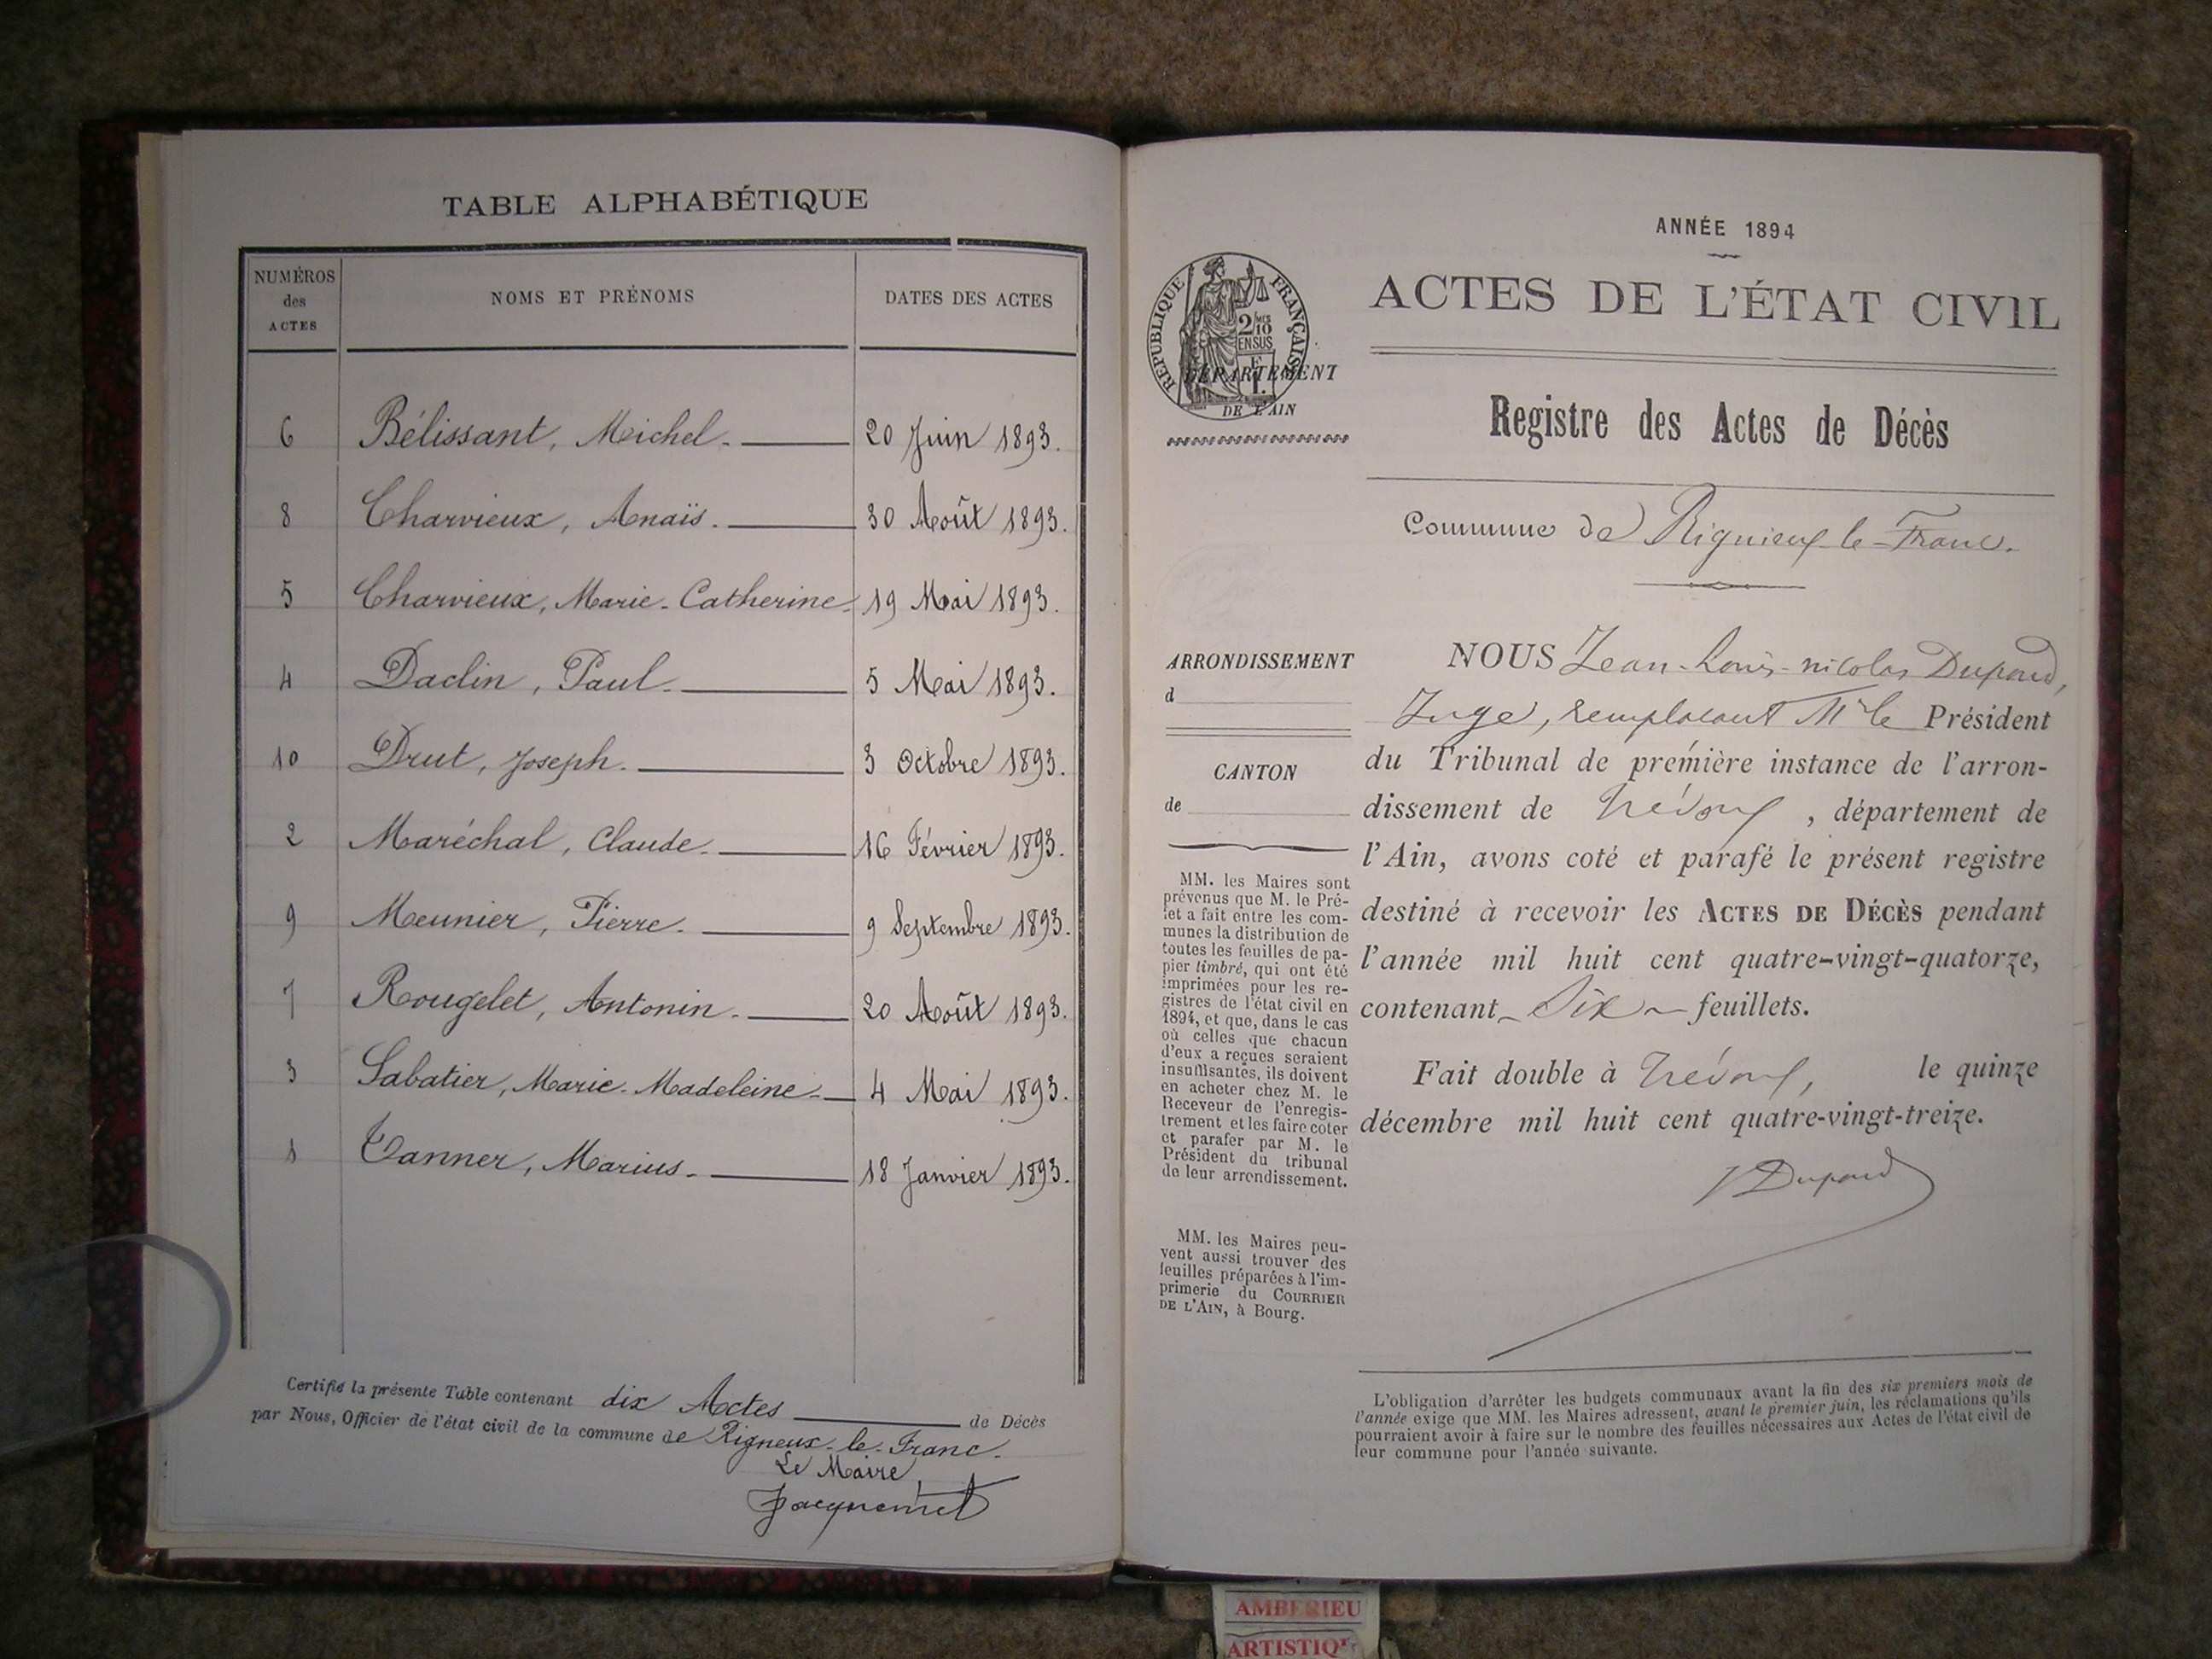 TABLE ALPHABÉTIQUE
NUMÉROS des ACTES
NOMS ET PRÉNOMS
DATES DES ACTES
6 Bélissant, Michel. 20 Juin 1893.
8 Charvieux, Anaïs. 30 Août 1893.
5 Charvieux, Marie-Catherine. 19 Mai 1893.
4 Daclin, Paul. 5 Mai 1893.
10 Drut, Joseph. 3 Octobre 1893.
2 Maréchal, Claude. 16 Février 1893.
9 Meunier, Pierre. 9 Septembre 1893.
7 Rougelet, Antonin. 20 Août 1893.
3 Sabatier, Marie-Madeleine. 4 Mai 1893.
1 Vanner, Marius. 18 Janvier 1893.
Certifié la présente Table contenant dix Actes de Décès
par Nous, Officier de l'état civil de la commune de Rigneux-le-Franc.
Le Maire,
Jacquemet
ANNÉE 1894
RÉPUBLIQUE FRANÇAISE
2/10
EN SUS
ACTES DE L'ÉTAT CIVIL
DÉPARTEMENT
DE L'AIN
Registre des Actes de Décès
Commune de Rignieux-le-Franc.
ARRONDISSEMENT
d
CANTON
de
MM. les Maires sont
prévenus que M. le Pré-
fet a fait entre les com-
munes la distribution de
toutes les feuilles de pa-
pier timbré, qui ont été
imprimées pour les re-
gistres de l'état civil en
1894, et que, dans le cas
où celles que chacun
d'eux a reçues seraient
insuffisantes, ils doivent
en acheter chez M. le
Receveur de l'enregis-
trement et les faire coter
et parafer par M. le
Président du tribunal
de leur arrondissement.
MM. les Maires peu-
vent aussi trouver des
feuilles préparées à l'im-
primerie du COURRIER
DE L'AIN, à Bourg.
NOUS Jean-Louis-nicolas Dupond,
Juge, remplacant Mr le Président
du Tribunal de première instance de l'arron-
dissement de Trévoux, département de
l'Ain, avons coté et parafé le présent registre
destiné à recevoir les ACTES DE DÉCÈS pendant
l'année mil huit cent quatre-vingt-quatorze,
contenant Six feuillets.
Fait double à Trévoux, le quinze
décembre mil huit cent quatre-vingt-treize.
Dupond
L'obligation d'arrêter les budgets communaux avant la fin des six premiers mois de
l'année exige que MM. les Maires adressent, avant le premier juin, les réclamations qu'ils
pourraient avoir à faire sur le nombre des feuilles nécessaires aux Actes de l'état civil de
leur commune pour l'année suivante.
AMBERIEU
ARTISTIQ